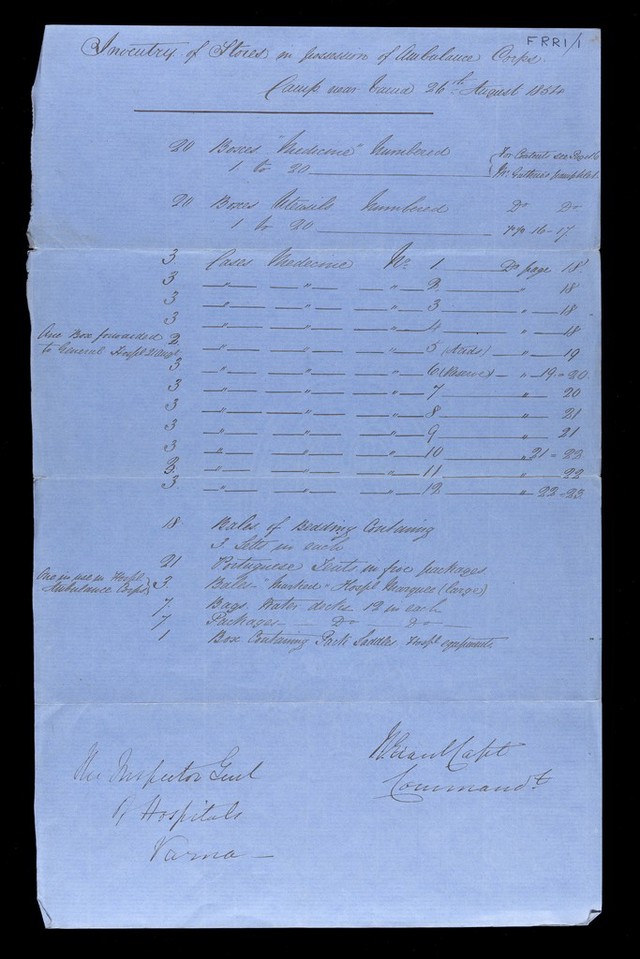 FRR1/1
Inventry of Stores in possession of Ambulance Corps.
Camp near Varna 26th August 1854
20 Boxes "Medicine" Numbered
1 to 20 For Contents see Page 16 Mr. Guthries pamphlet
20 Boxes Utensils Numbered Do Do
1 to 20 pp 16-17
3 Cases Medicine No. 1 Do page 18
3 — " — — " — — " — 2 " 18
3 — " — — " — — " — 3 " 18
3 — " — — " — — " — 4 " 18
One Box forwarded to General Hospl 21 Augt 2 — " — — " — — " — 5 (Acids) — " — 19
3 — " — — " — — " — 6 (Reserve) — " — 19 = 20
3 — " — — " — — " — 7 " 20
3 — " — — " — — " — 8 " 21
3 — " — — " — — " — 9 " 21
3 — " — — " — — " — 10 " 21 = 22
3 — " — — " — — " — 11 " 22
3 — " — — " — — " — 12 " 22 = 23
18 Bales of Bedding Containing
3 Setts in each
21 Portuguese Tents in five packages
One in use in Hospl Ambulance Corps 3 Bales "marked" Hospl Marquee (large)
7 Bags Water decks 12 in each
7 Packages — Do — Do —
1 Box Containing Pack Saddles Hospl
Capt
Commandt
The Inspector Genl
of Hospitals
Varna —